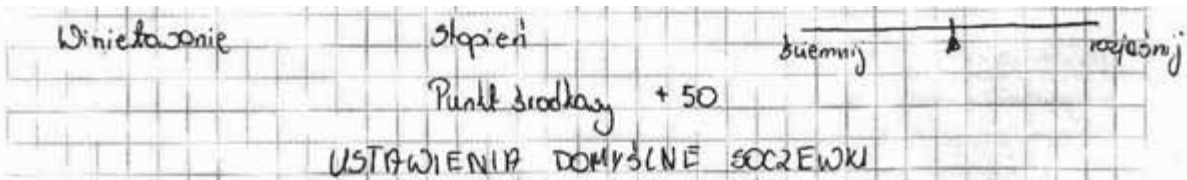 Winietowanie Stopień ściemnij rozjaśnij
Punkt środkowy + 50
USTAWIENIA DOMYŚLNE SOCZEWKI